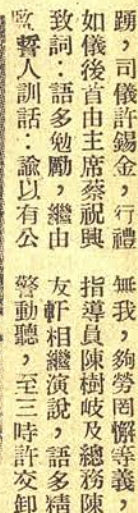 踴，司儀許錫金，行禮
如儀後首由主席蔡祝興
致詞：語多勉勵，繼由
監誓人訓話：諭以有公
無我，夠勞罔懈等義，
指導員陳樹岐及總務陳
友軒相繼演說，語多精
警動聽，至三時許交卸